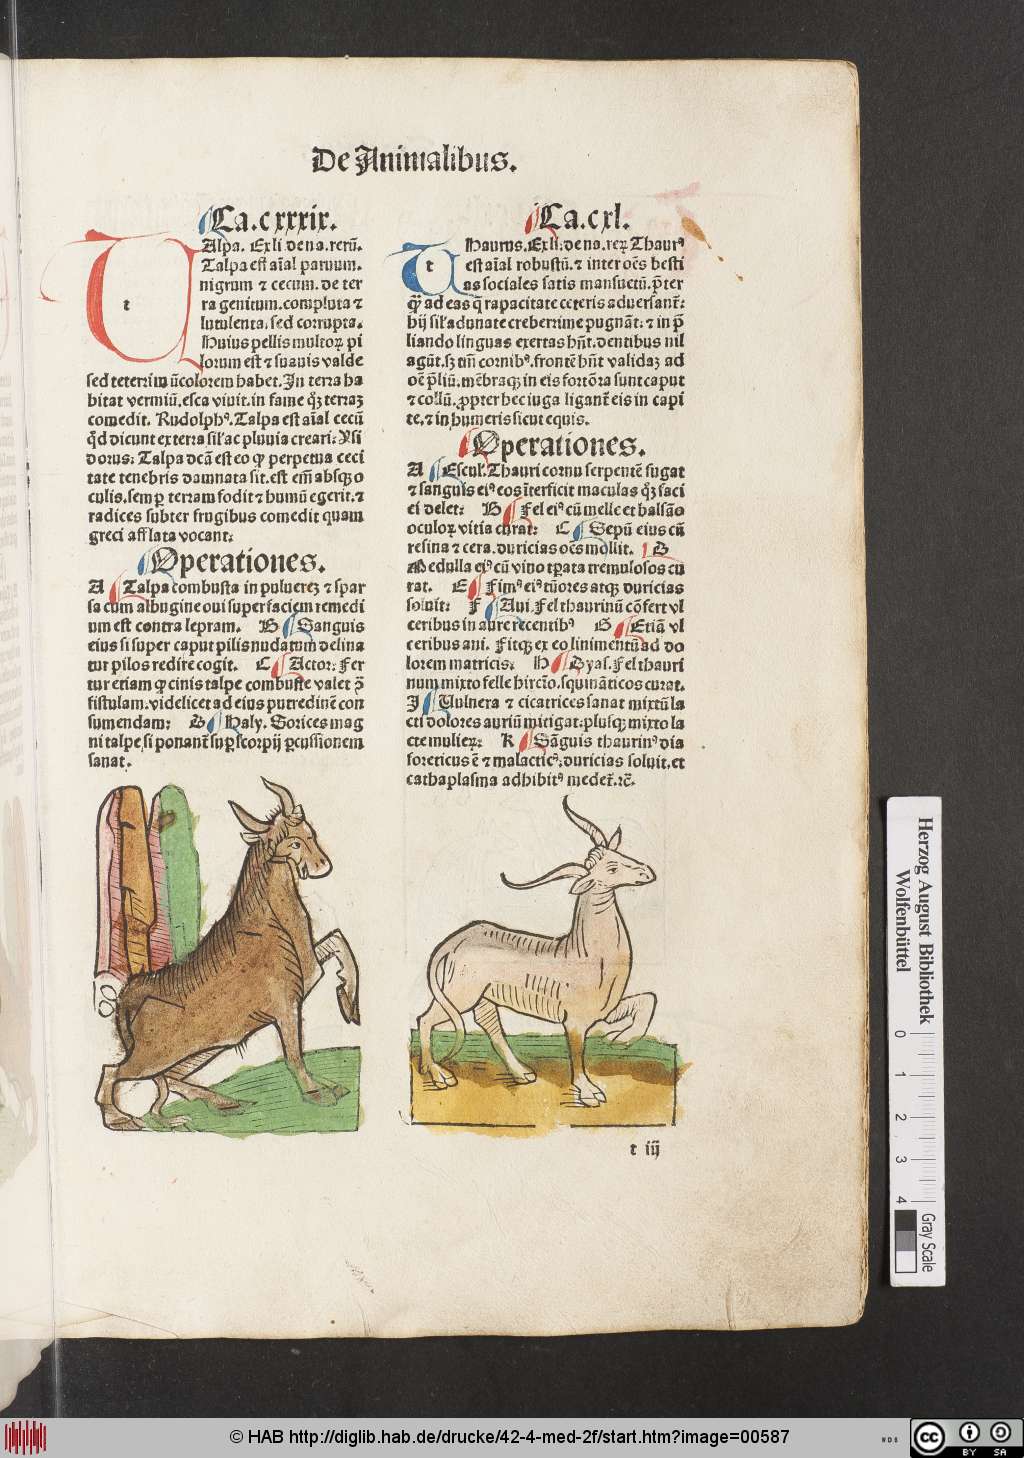 De Animalibus.
Ca.cxxxix.
t
Alpa. Ex li de na. rerū.
Talpa est aīal paruum.
nigrum ⁊ cecum. de ter
ra genitum. compluta ⁊
lutulenta, sed corrupta.
Huius pellis multoꝝ pi
lorum est ⁊ suauis valde
sed teterrimū colorem habet. In terra ha
bitat vermiū, esca viuit. in fame qͦꝫ terraꝫ
comedit. Rudolphꝰ. Talpa est aīal cecū
qd̄ dicunt ex terra sil'ac pluuia creari: Ysi
dorus: Talpa dcā est eo ꝙ perpetua ceci
tate tenebris damnata sit. est em̄ absqꝫ o
culis, semꝑ terram fodit ⁊ humū egerit. ⁊
radices subter frugibus comedit quam
greci afflata vocant:
Operationes.
A Talpa combusta in puluereꝫ ⁊ spar
sa cum albugine oui super faciem remedi
um est contra lepram. B Sanguis
eius si super caput pilis nudatum delina
tur pilos redire cogit. C Actor: Fer
tur etiam ꝙ cinis talpe combuste valet ꝯ̄
fistulam. videlicet ad eius putredinē con
sumendam: D Haly. Sorices mag
ni talpe si ponant᷑ suꝑ scorpij ꝑcussionem
sanat.
Ca.cxl.
t
Haurus. Ex li. de na. reꝝ Thaurꝰ
est aīal robustū. ⁊ inter oēs besti
as sociales satis mansuetū. p̄ter
ꝙ ad eas q̄ rapacitate ceteris aduersant᷑:
hij sil'adunate creberrime pugnāt: ⁊ in p̄
liando linguas exertas hn̄t. dentibus nil
agūt. sꝫ tm̄ cornibꝰ. frontē hn̄t validaꝫ ad
oē p̄liū. mēbraqꝫ in eis fortōra sunt caput
⁊ collū. ꝓpter hec iuga ligant᷑ eis in capi
te. ⁊ in humeris sicut equis.
Operationes.
A Escul'. Thauri cornu serpentē fugat
⁊ sanguis eiꝰ eos īterficit maculas qͦꝫ faci
ei delet: B Fel eiꝰ cū melle et balsāo
oculoꝝ vitia curat: C Sepū eius cū
resina ⁊ cera. duricias oēs mollit. D
Medulla eiꝰ cū vino tꝑata tremulosos cu
rat. E Fimꝰ eiꝰ tūores atqꝫ duricias
soluit: F Aui. Fel thaurinū cōfert vl
ceribus in aure recentibꝰ G Etiā vl
ceribus ani. Fitqꝫ ex eo linimentū ad do
lorem matricis: H Dyas. Fel thauri
num mixto felle hircīo. squināticos curat.
I Vulnera ⁊ cicatrices sanat mixtū la
cti dolores auriū mitigat. plusqꝫ mixto la
cte mulieꝝ: K Sāguis thaurinꝰ dia
foreticus ē ⁊ malacticꝰ, duricias soluit. et
cathaplasma adhibitꝰ medet᷑. ⁊c̄.
t iij
Herzog August Bibliothek
Wolfenbüttel
0 1 2 3 4
Gray Scale
© HAB http://diglib.hab.de/drucke/42-4-med-2f/start.htm?image=00587
WDB
cc BY SA